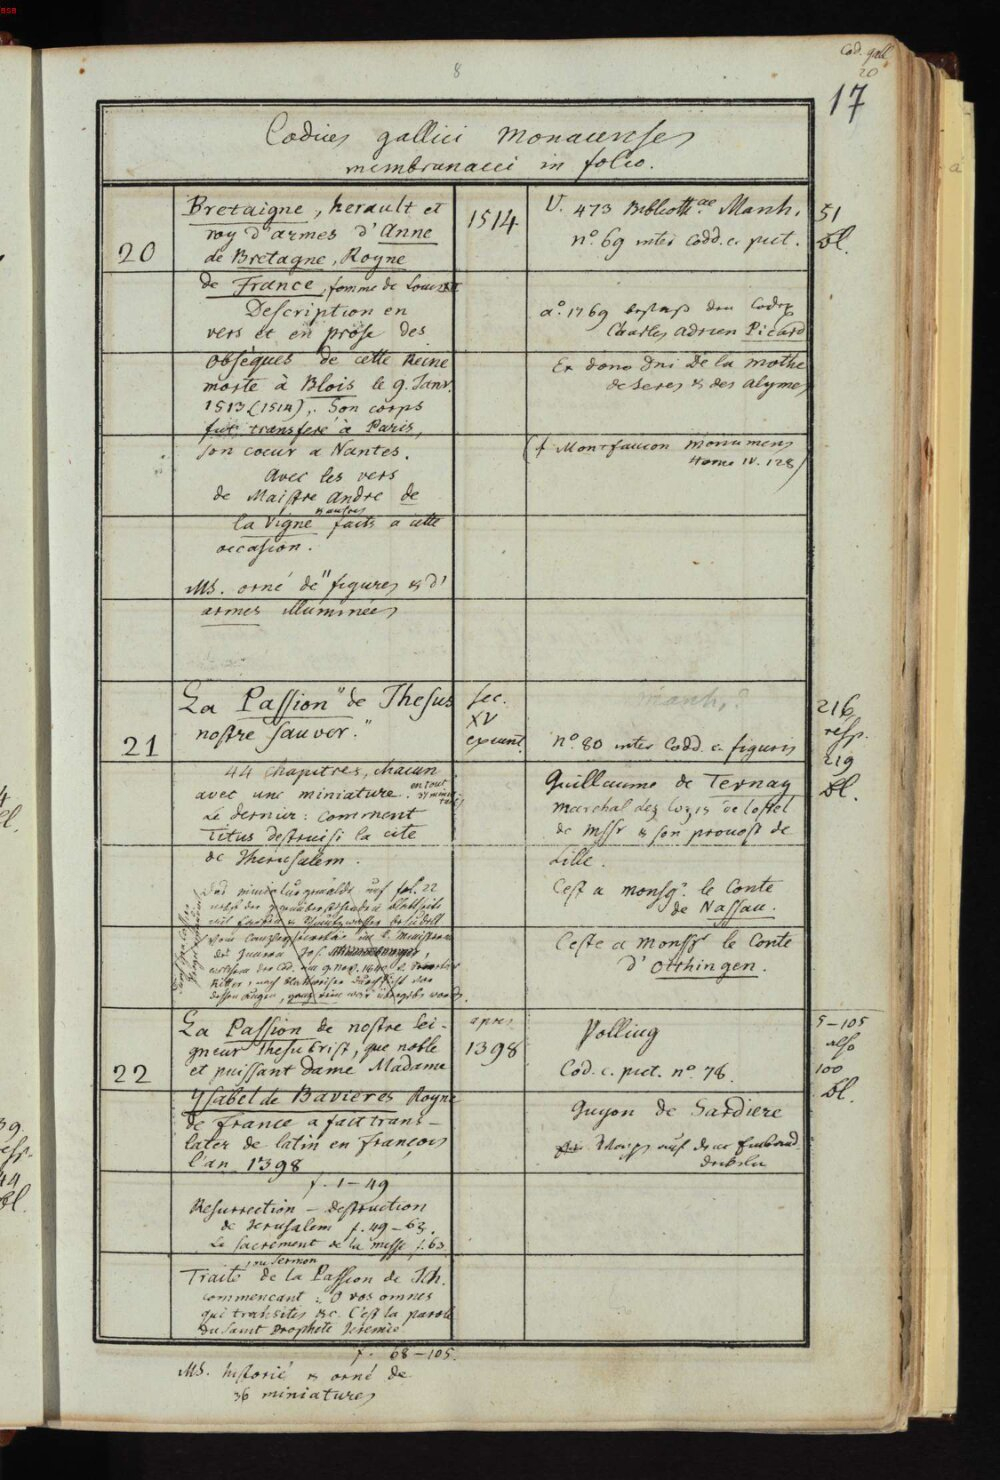 8
Cod. gall
20
17
Codices gallici monacenses
membranacei in folio.
20
Bretaigne, herault et
roy d'armes d'Anne
de Bretagne, Royne
de France, femme de Louis XII
Description en
vers et en prose des
obsèques de cette Reine
morte à Blois le 9. Janv.
1513 (1514). Son corps
fut transferé à Paris,
son coeur a Nantes.
Avec les vers
de Maistre Andre de
la Vigne & autres faits a cette
occasion.
MS. orné de " figures & d'
armes illuminees
1514
V. 473 Biblioth.ae Manh.
nº 69 inter Codd. c. pict.
aº. 1769 den Codex
Charles Adrien Picard
Ex dono Dni De la Mothe
des Alymes
(f Montfaucon monumens
tome IV. 128)
51
Bl.
21
La Passion " de Jhesus
nostre sauver."
44 chapitres, chacun
avec une miniature. en tout
Le dernier: comment
Titus destruisi la cite
de Jherusalem.
auf fol. 22
sec.
XV
exeunt.
Manh.?
nº. 80 inter Codd. c. figuris
Guillaume de Ternay
marchal des de lostel
de mssr & son prouost de
Lille.
Cest a monsgr. le Conte
de Nassau.
Ceste a Monssr le Conte
d'Otthingen.
216
resp.
219
Bl.
22
La Passion de nostre sei-
gneur Jhesu Crist, que noble
et puissant dame Madame
Ysabel de Bavieres Royne
de france a fait trans-
later de latin en françois
l'an 1398
f. 1-49
Resurrection - destruction
de Jerusalem f. 49-63.
Le sacrement de la messe f. 63
Traité ou sermon de la Passion de Jch.
commencant: O vos omnes
qui transitis &c. C'est la parole
du saint prophete Jeremie
f. 68-105.
MS. historié & orné de
36 miniatures
apres
1398
Polling
Cod. c. pict. nº. 78.
Guyon de Sardiere
auf dem Einband
5-105
also
100
Bl.